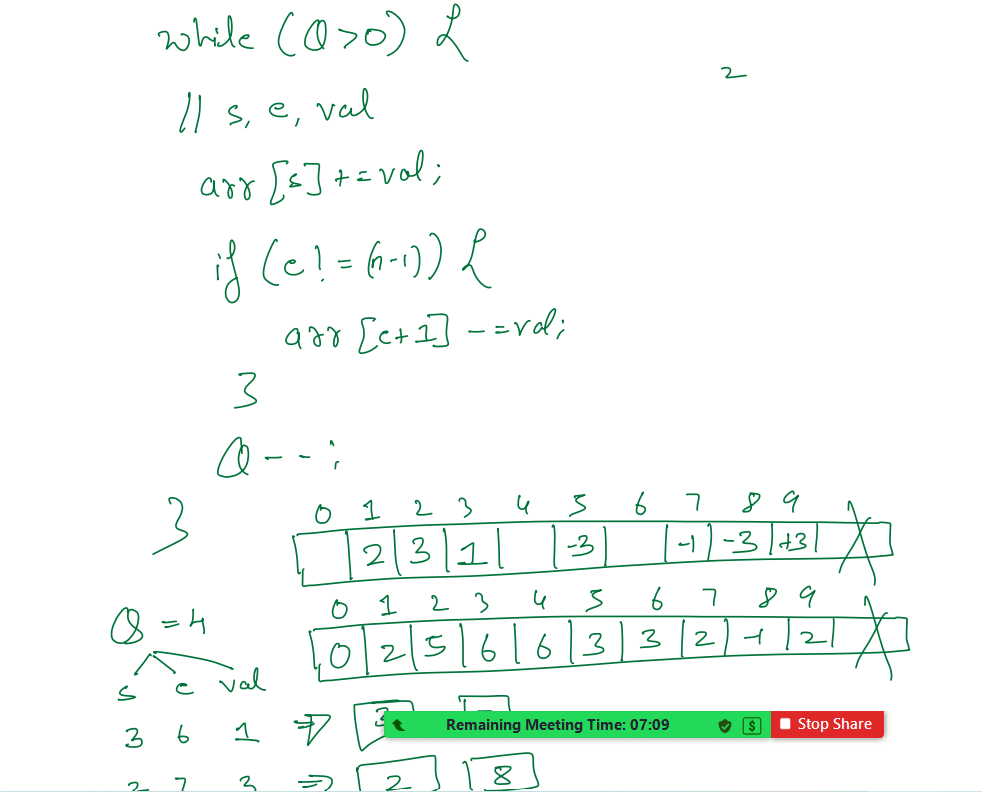 while (Q>0) {
2
// s, e, val
arr [s] += val;
if (e != (n-1)) {
arr [e+1] -= val;
}
Q--;
}
0 1 2 3 4 5 6 7 8 9
2 3 1 -3 -1 -3 +3
0 1 2 3 4 5 6 7 8 9
Q = 4
0 2 5 6 6 3 3 2 -1 2
s e val
3 6 1 ⇒ 3
Remaining Meeting Time: 07:09 $ Stop Share
2 7 3 ⇒ 2 8